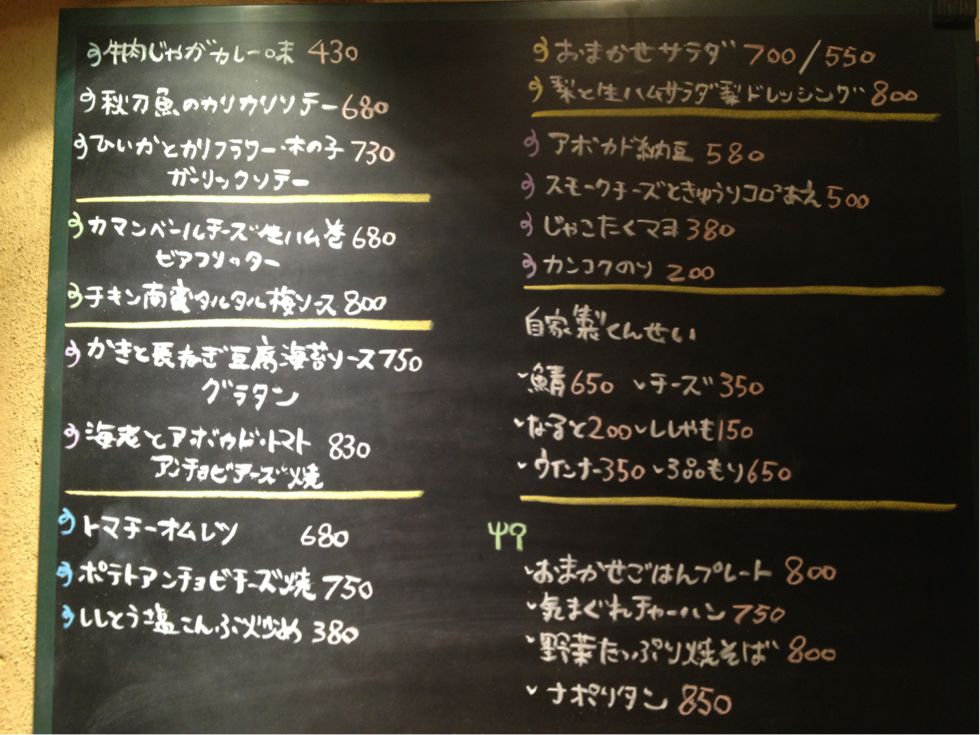 牛肉じゃがカレー味 430
秋刀魚のカリカリソテー 680
ひいかとカリフラワー・木の子 730
ガーリックソテー
カマンベールチーズ生ハム巻 680
ビアフリッター
チキン南蛮タルタル梅ソース 800
かきと長ねぎ豆腐海苔ソース 750
グラタン
海老とアボカド・トマト 830
アンチョビチーズ焼
トマチーオムレツ 680
ポテトアンチョビチーズ焼 750
ししとう塩こんぶ炒め 380
おまかせサラダ 700/550
梨と生ハムサラダ梨ドレッシング 800
アボカド納豆 580
スモークチーズときゅうりコロコロあえ 500
じゃこたくマヨ 380
カンコクのり 200
自家製くんせい
鯖 650 チーズ 350
なると 200 ししゃも 150
ウインナー 350 3品もり 650
おまかせごはんプレート 800
気まぐれチャーハン 750
野菜たっぷり焼そば 800
ナポリタン 850